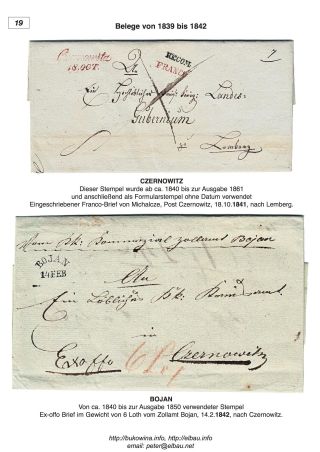 19
Belege von 1839 bis 1842
Czernowitz
18. OCT.
RECOM
FRANCO
An
Ein Hochlöbliches
Landes-
Gubernium
Lemberg
CZERNOWITZ
Dieser Stempel wurde ab ca. 1840 bis zur Ausgabe 1861
und anschließend als Formularstempel ohne Datum verwendet
Eingeschriebener Franco-Brief von Michalcze, Post Czernowitz, 18.10.1841, nach Lemberg.
Vom Kk: Commerzial Zollamt Bojan
BOJAN
14 FEB
An
Ein Löbliches Kk:
Exoffo
Czernowitz
BOJAN
Von ca. 1840 bis zur Ausgabe 1850 verwendeter Stempel
Ex-offo Brief im Gewicht von 6 Loth vom Zollamt Bojan, 14.2.1842, nach Czernowitz.
http://bukowina.info, http://eibau.info
email: peter@eibau.net